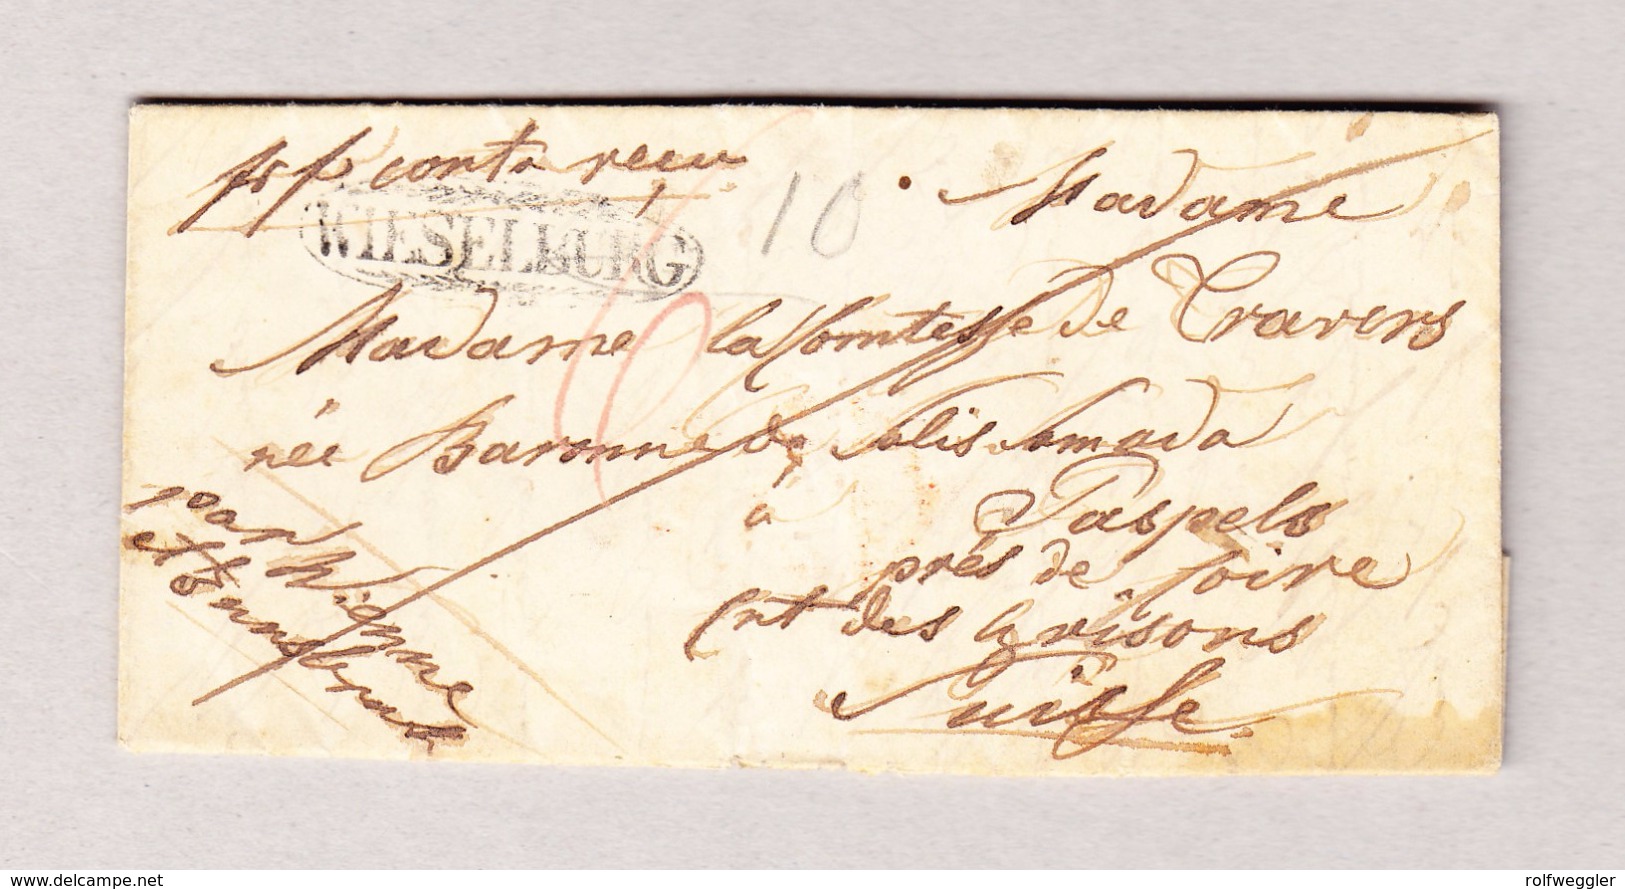 frp contre reçu
WIESELBURG
10
Madame
Madame la Comtesse de Travers
née Baronne de Salis Samada
à Paspels
près de Coire
Cnt des Grisons
Suisse.
par Vienne
et Innsbruck
www.delcampe.net
rolfweggler